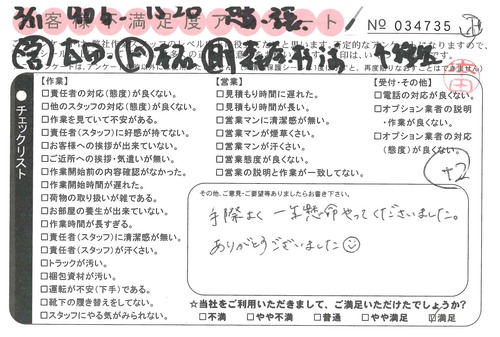 お客様不満足度アンケート
No 034735
チェックリスト
【作業】
□責任者の対応(態度)が良くない。
□他のスタッフの対応(態度)が良くない。
□作業を見ていて不安がある。
□責任者(スタッフ)に好感が持てない。
□お客様への挨拶が出来ていない。
□ご近所への挨拶・気遣いが無い。
□作業開始前の内容確認がなかった。
□作業開始時間が遅れた。
□荷物の取り扱いが雑である。
□お部屋の養生が出来ていない。
□作業時間が長すぎる。
□責任者(スタッフ)に清潔感が無い。
□責任者(スタッフ)が汗くさい。
□トラックが汚い。
□梱包資材が汚い。
□運転が不安(下手)である。
□靴下の履き替えをしてない。
□スタッフにやる気がみられない。
【営業】
□見積もり時間に遅れた。
□見積もり時間が長い。
□営業マンに清潔感が無い。
□営業マンが煙草くさい。
□営業マンが汗くさい。
□営業態度が良くない。
□営業の説明と作業が一致してない。
【受付・その他】
□電話の対応が良くない。
□オプション業者の説明
・作業が良くない。
□オプション業者の対応
(態度)が良くない。
+2
その他、ご意見・ご要望等ありましたらお書き下さい。
手際よく一生懸命やってくださいました。
ありがとうございました
☆当社をご利用いただきまして、ご満足いただけたでしょうか?
□不満 □やや不満 □普通 □やや満足 ☑満足